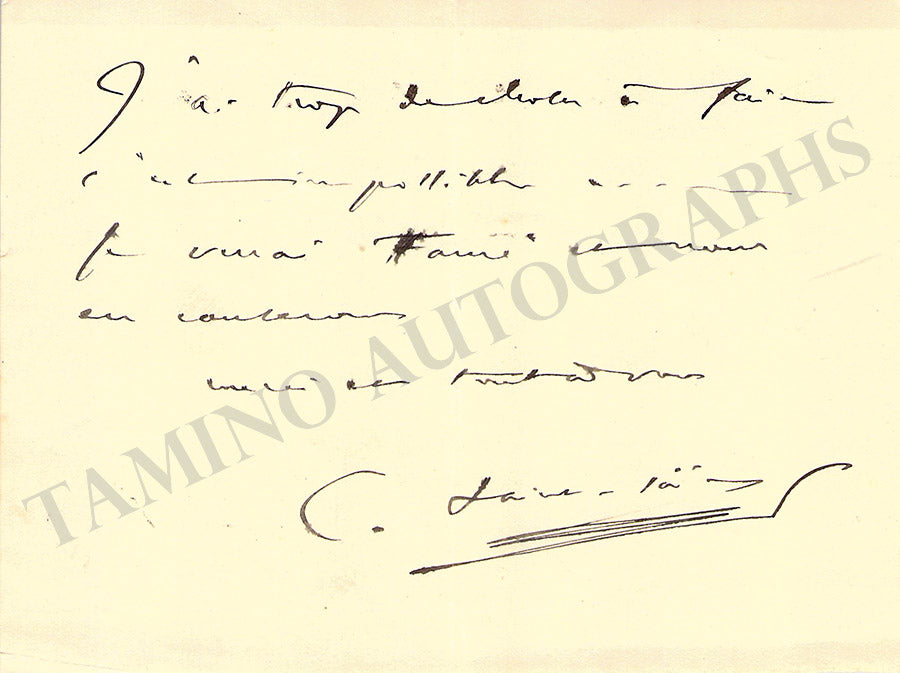 J'ai trop de choses à faire
c'est impossible . . . .
Je verrai Fauré et nous
en causerons
merci et tout à vous
C. Saint-Saëns
TAMINO AUTOGRAPHS